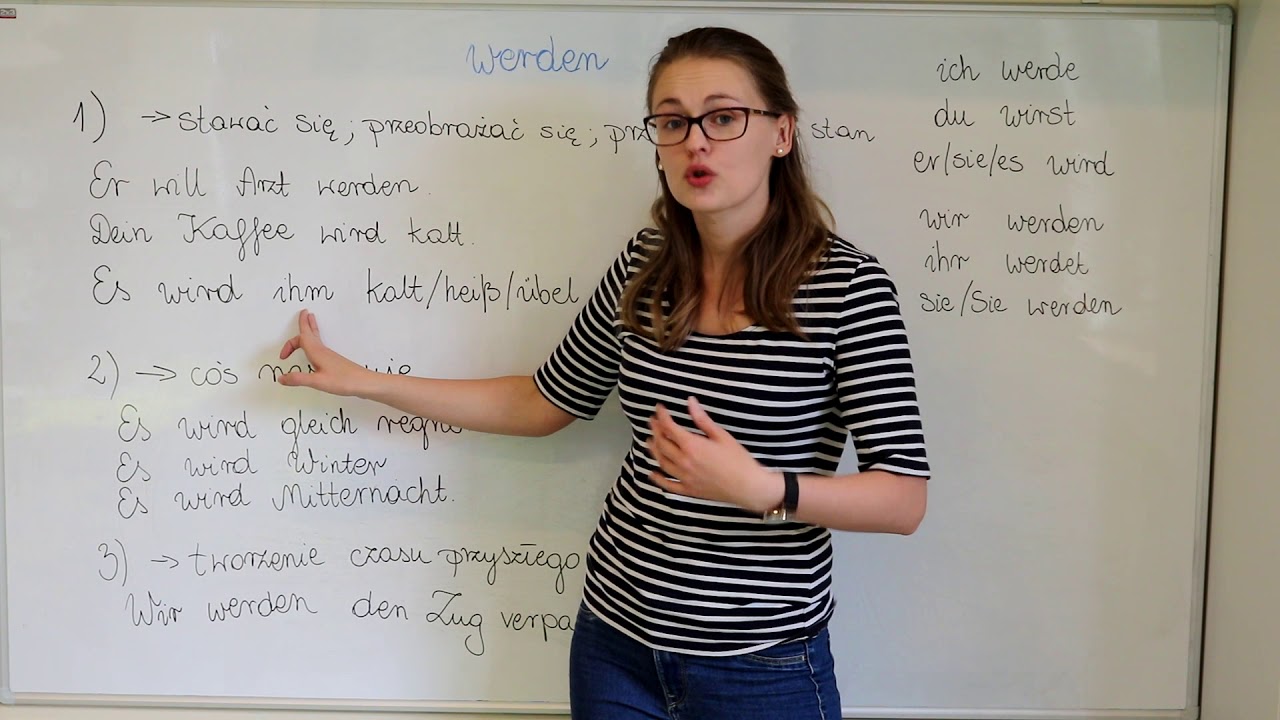 werden
1) → stawać się; przeobrażać się; stan
Er will Arzt werden.
Dein Kaffee wird kalt.
Es wird ihm kalt/heiß/übel
2) → coś
Es wird gleich
Es wird Winter
Es wird Mitternacht.
3) → tworzenie czasu przyszłego
Wir werden den Zug
ich werde
du wirst
er/sie/es wird
wir werden
ihr werdet
sie/Sie werden